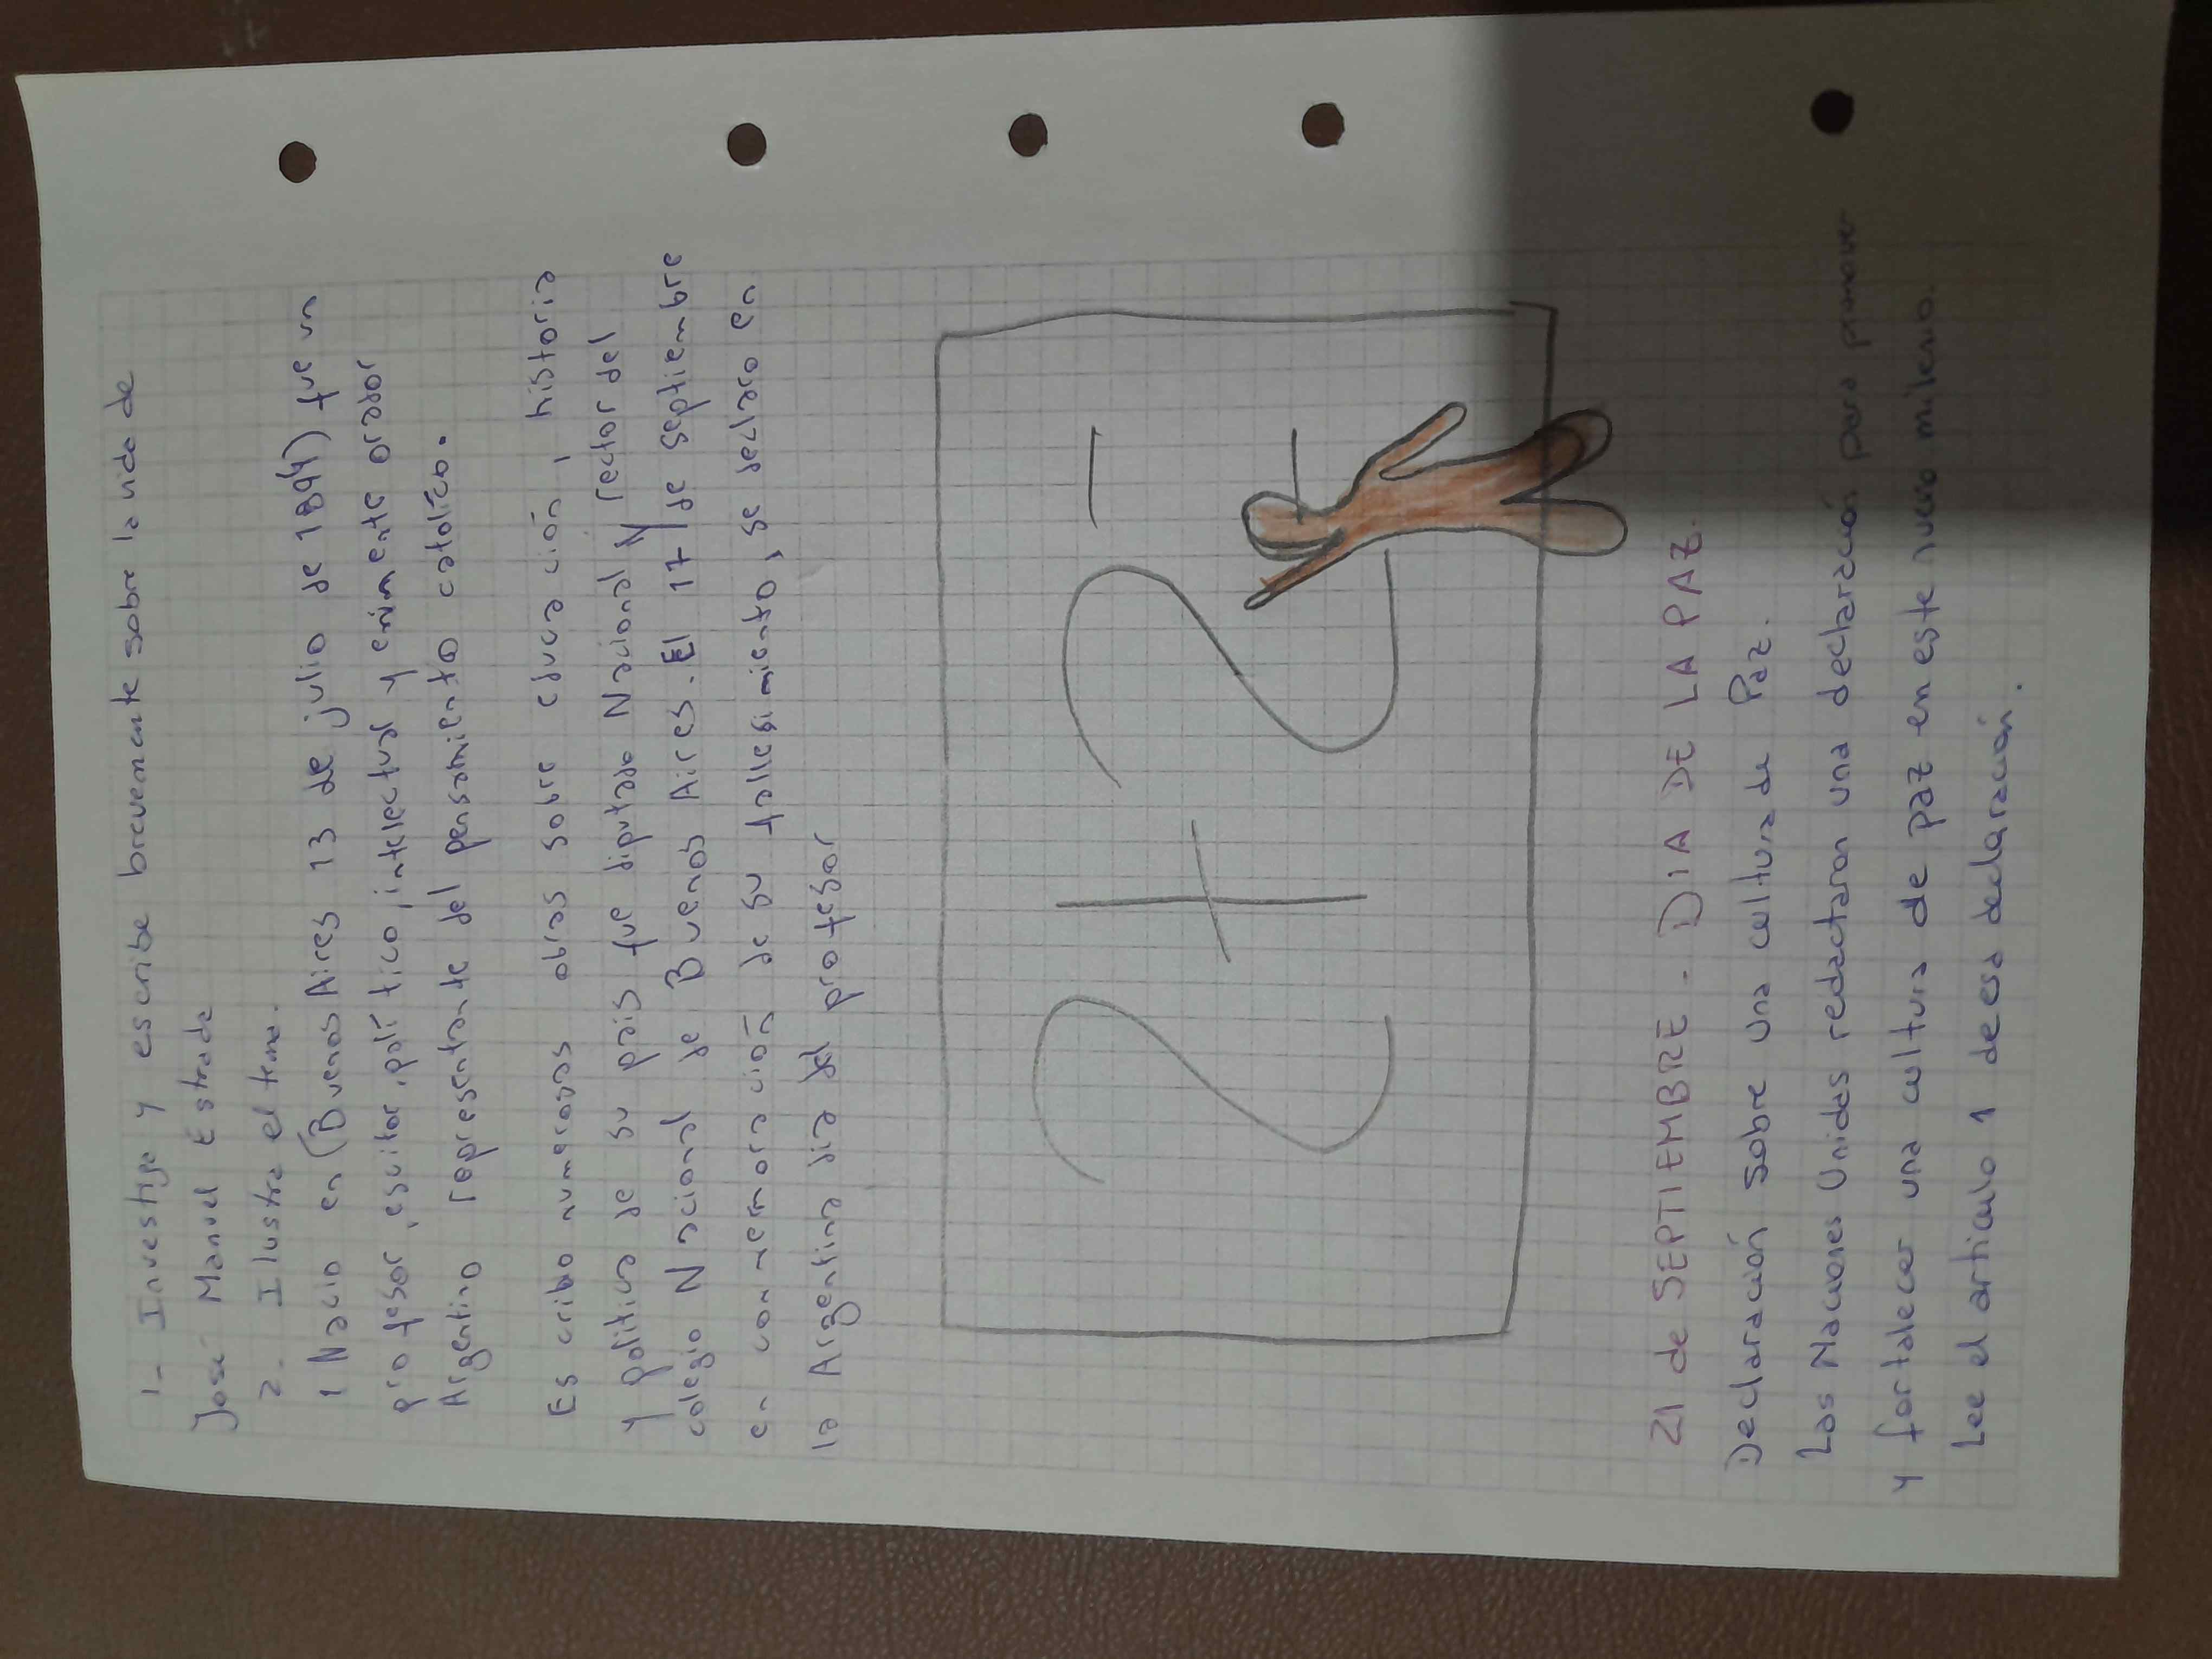 1- Investiga y escribe brevemente sobre la vida de
José Manuel Estrada
2- Ilustra el tema.
1 Nacio en (Buenos Aires 13 de julio de 1894) fue un
profesor, esvitor, polí tico, intelectual y eminente orador
Argentino representante del pensamiento catolíco.
Es cribio numerosas obras sobre educa ción, historia
y politica de su país fue diputado Nacional y rector del
colegio Nacional de Buenos Aires. El 17 de septiembre
en con memora ción de su fallesimiento, se declaro en
la Argentina dia del profesor
2 + 2 =
21 de SEPTIEMBRE - DIA DE LA PAZ.
Declaración sobre una cultura de Paz.
Las Naciones Unidas redactaron una declaración para promover
y fortalecer una cultura de paz en este nuevo milenio.
Lee el artículo 1 de esa declaración.